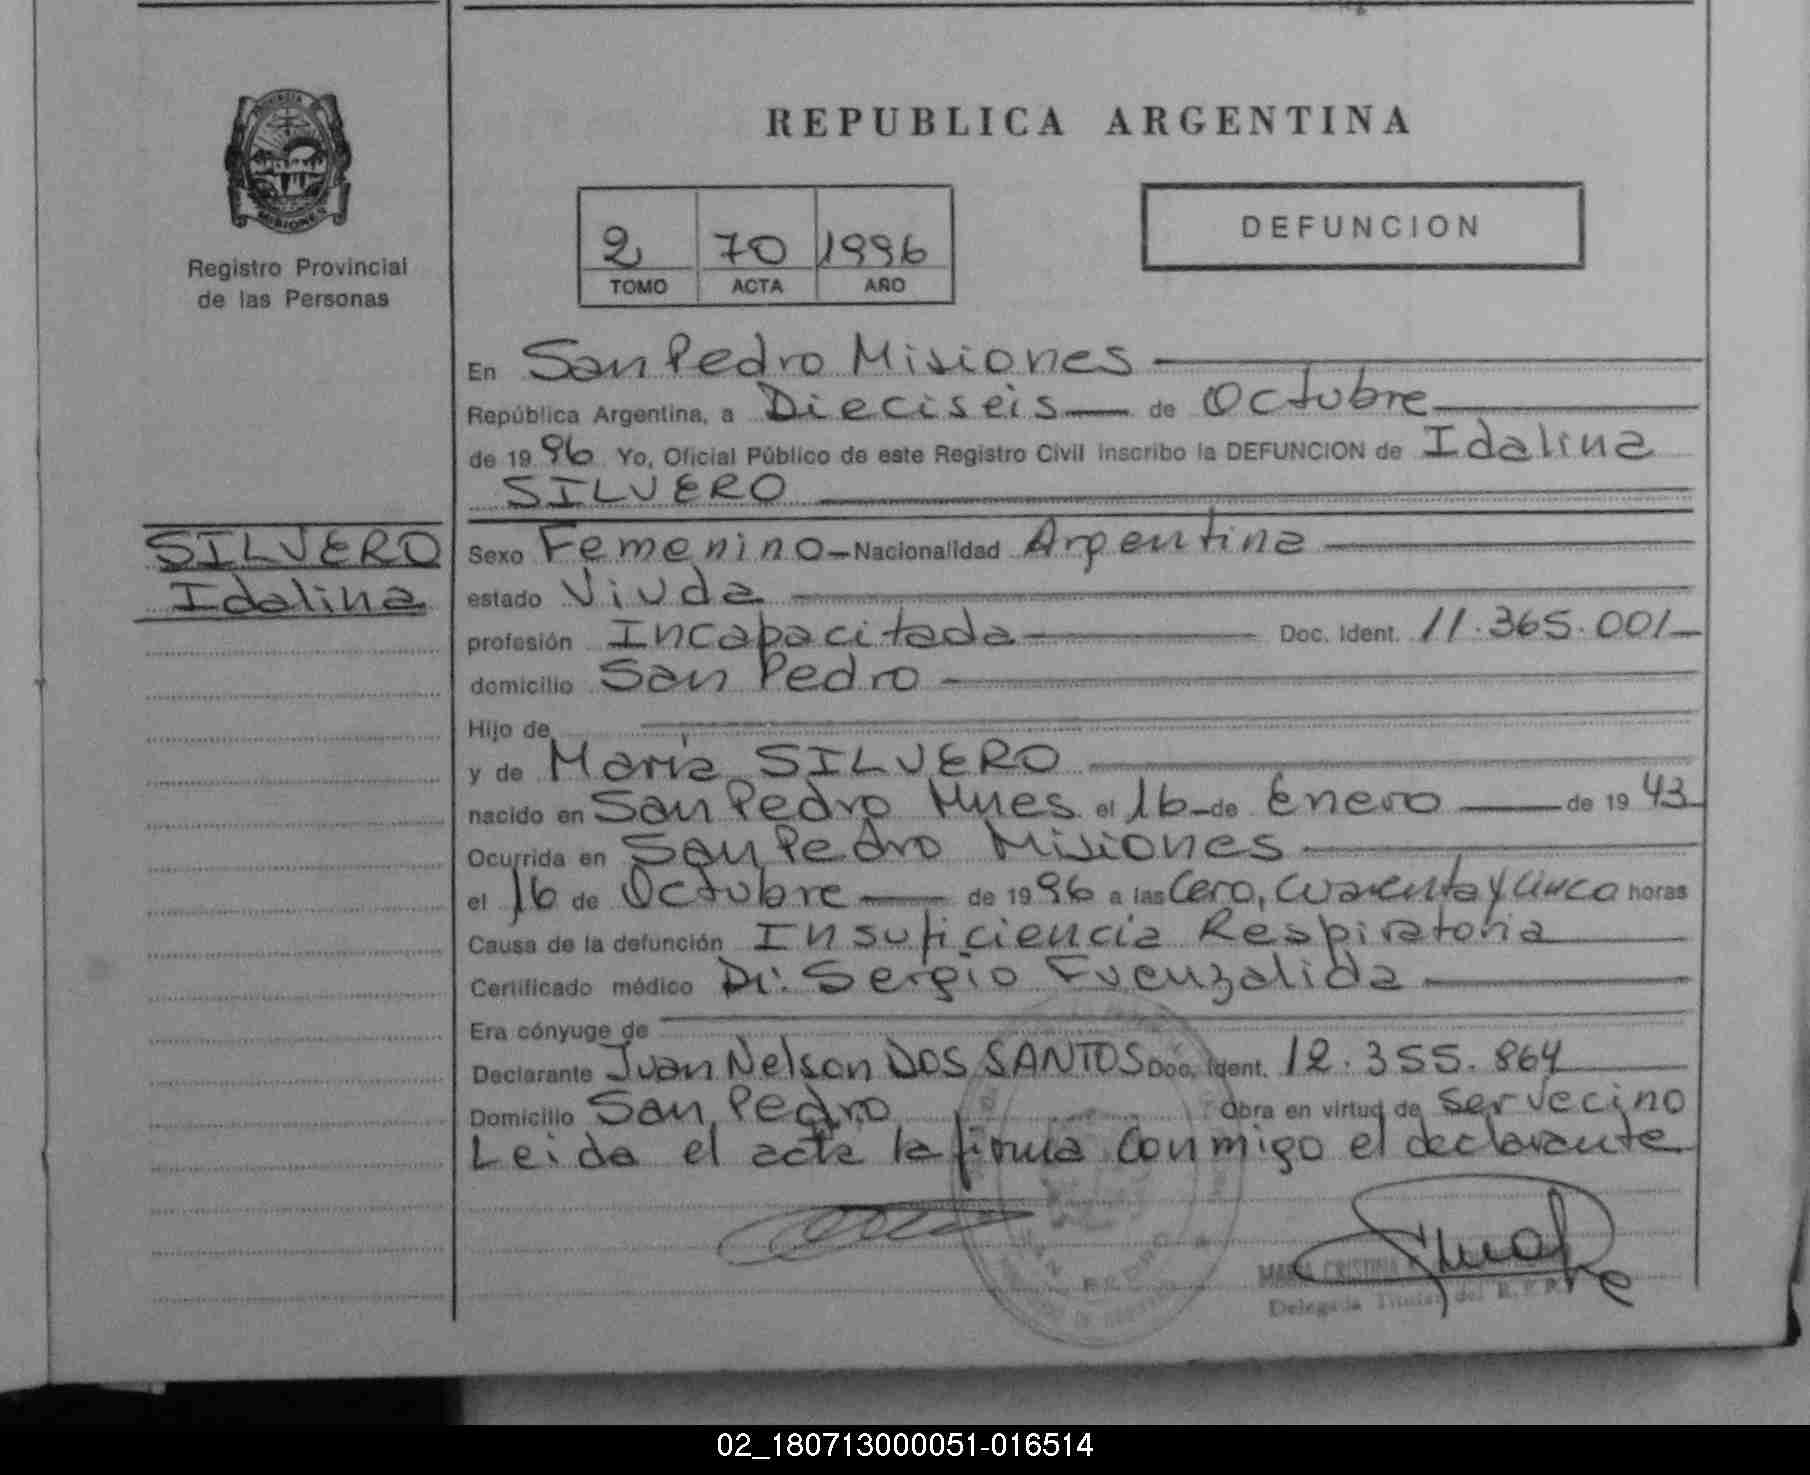 REPUBLICA ARGENTINA
PROVINCIA DE
MISIONES
Registro Provincial
de las Personas
2 70 1996
TOMO ACTA AÑO
DEFUNCION
En San Pedro Misiones
República Argentina, a Dieciseis de Octubre
de 1996 Yo, Oficial Público de este Registro Civil inscribo la DEFUNCION de Idalina
SILVERO
SILVERO
Idalina
Sexo Femenino Nacionalidad Argentina
estado Viuda
profesión Incapacitada Doc. Ident. 11.365.001
domicilio San Pedro
Hijo de
y de María SILVERO
nacido en San Pedro Mnes el 16 de Enero de 1943
Ocurrida en San Pedro Misiones
el 16 de Octubre de 1996 a las Cero, cuarenta y cinco horas
Causa de la defunción Insuficiencia Respiratoria
Certificado médico Dr: Sergio Fuenzalida
Era cónyuge de
Declarante Juan Nelson DOS SANTOS Doc. Ident. 12.355.864
Domicilio San Pedro Obra en virtud de ser vecino
Leida el acta la firma conmigo el declarante
SAN PEDRO
MARIA CRISTINA
Delegada Titular del R.P.P.
02_180713000051-016514